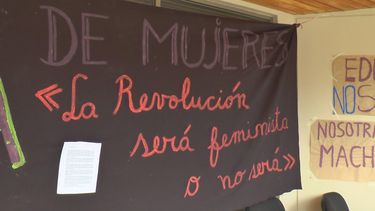 DE MUJERES
«La Revolución
será feminista
o no será»
NOS
NOSOTRA
MACH